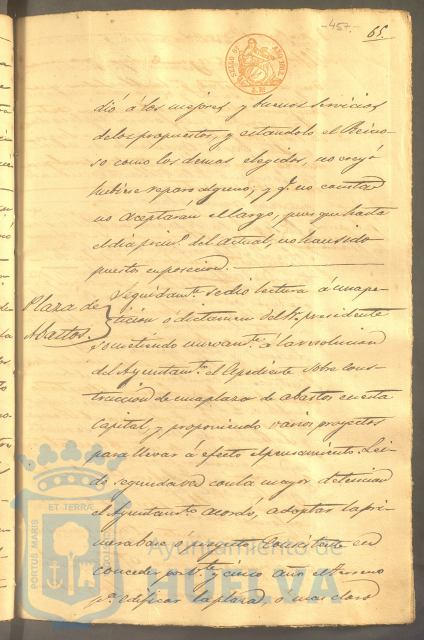 -457-
65.
dió á los mejores y buenos servicios
de los propuestos, y estandolo el
so como los demas elegidos, no creyó
hubiese reparo alguno; y q.e no
no aceptarán el cargo, pues que hasta
el dia del actual, no han sido
puestos en posecion.
Plaza de
Abastos.
Seguidam.te se dió lectura á una pe-
ticion ó dictamen del Sr. presidente
sometiendo nuevam.te á la resolucion
del Ayuntam.to el Espediente sobre cons-
truccion de una plaza de abastos en esta
Capital, y proponiendo varios proyectos
para llevar á efecto el pensamiento. Lei-
da seguidam.te con la mayor detencion
el Ayuntam.to acordó, adoptar la pri-
mera base o proyecto consistente en
conceder por te y cinco años el terreno
p.a edificar la plaza, o mas claro
ET TERRÆ
PORTUS MARIS
CUSTODIA
Ayuntamiento de
HUELVA